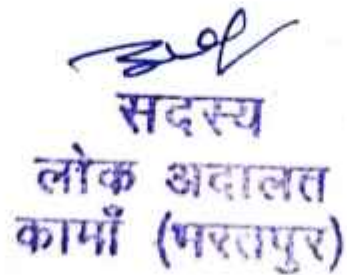 सदस्य
लोक अदालत
कामाँ (भरतपुर)